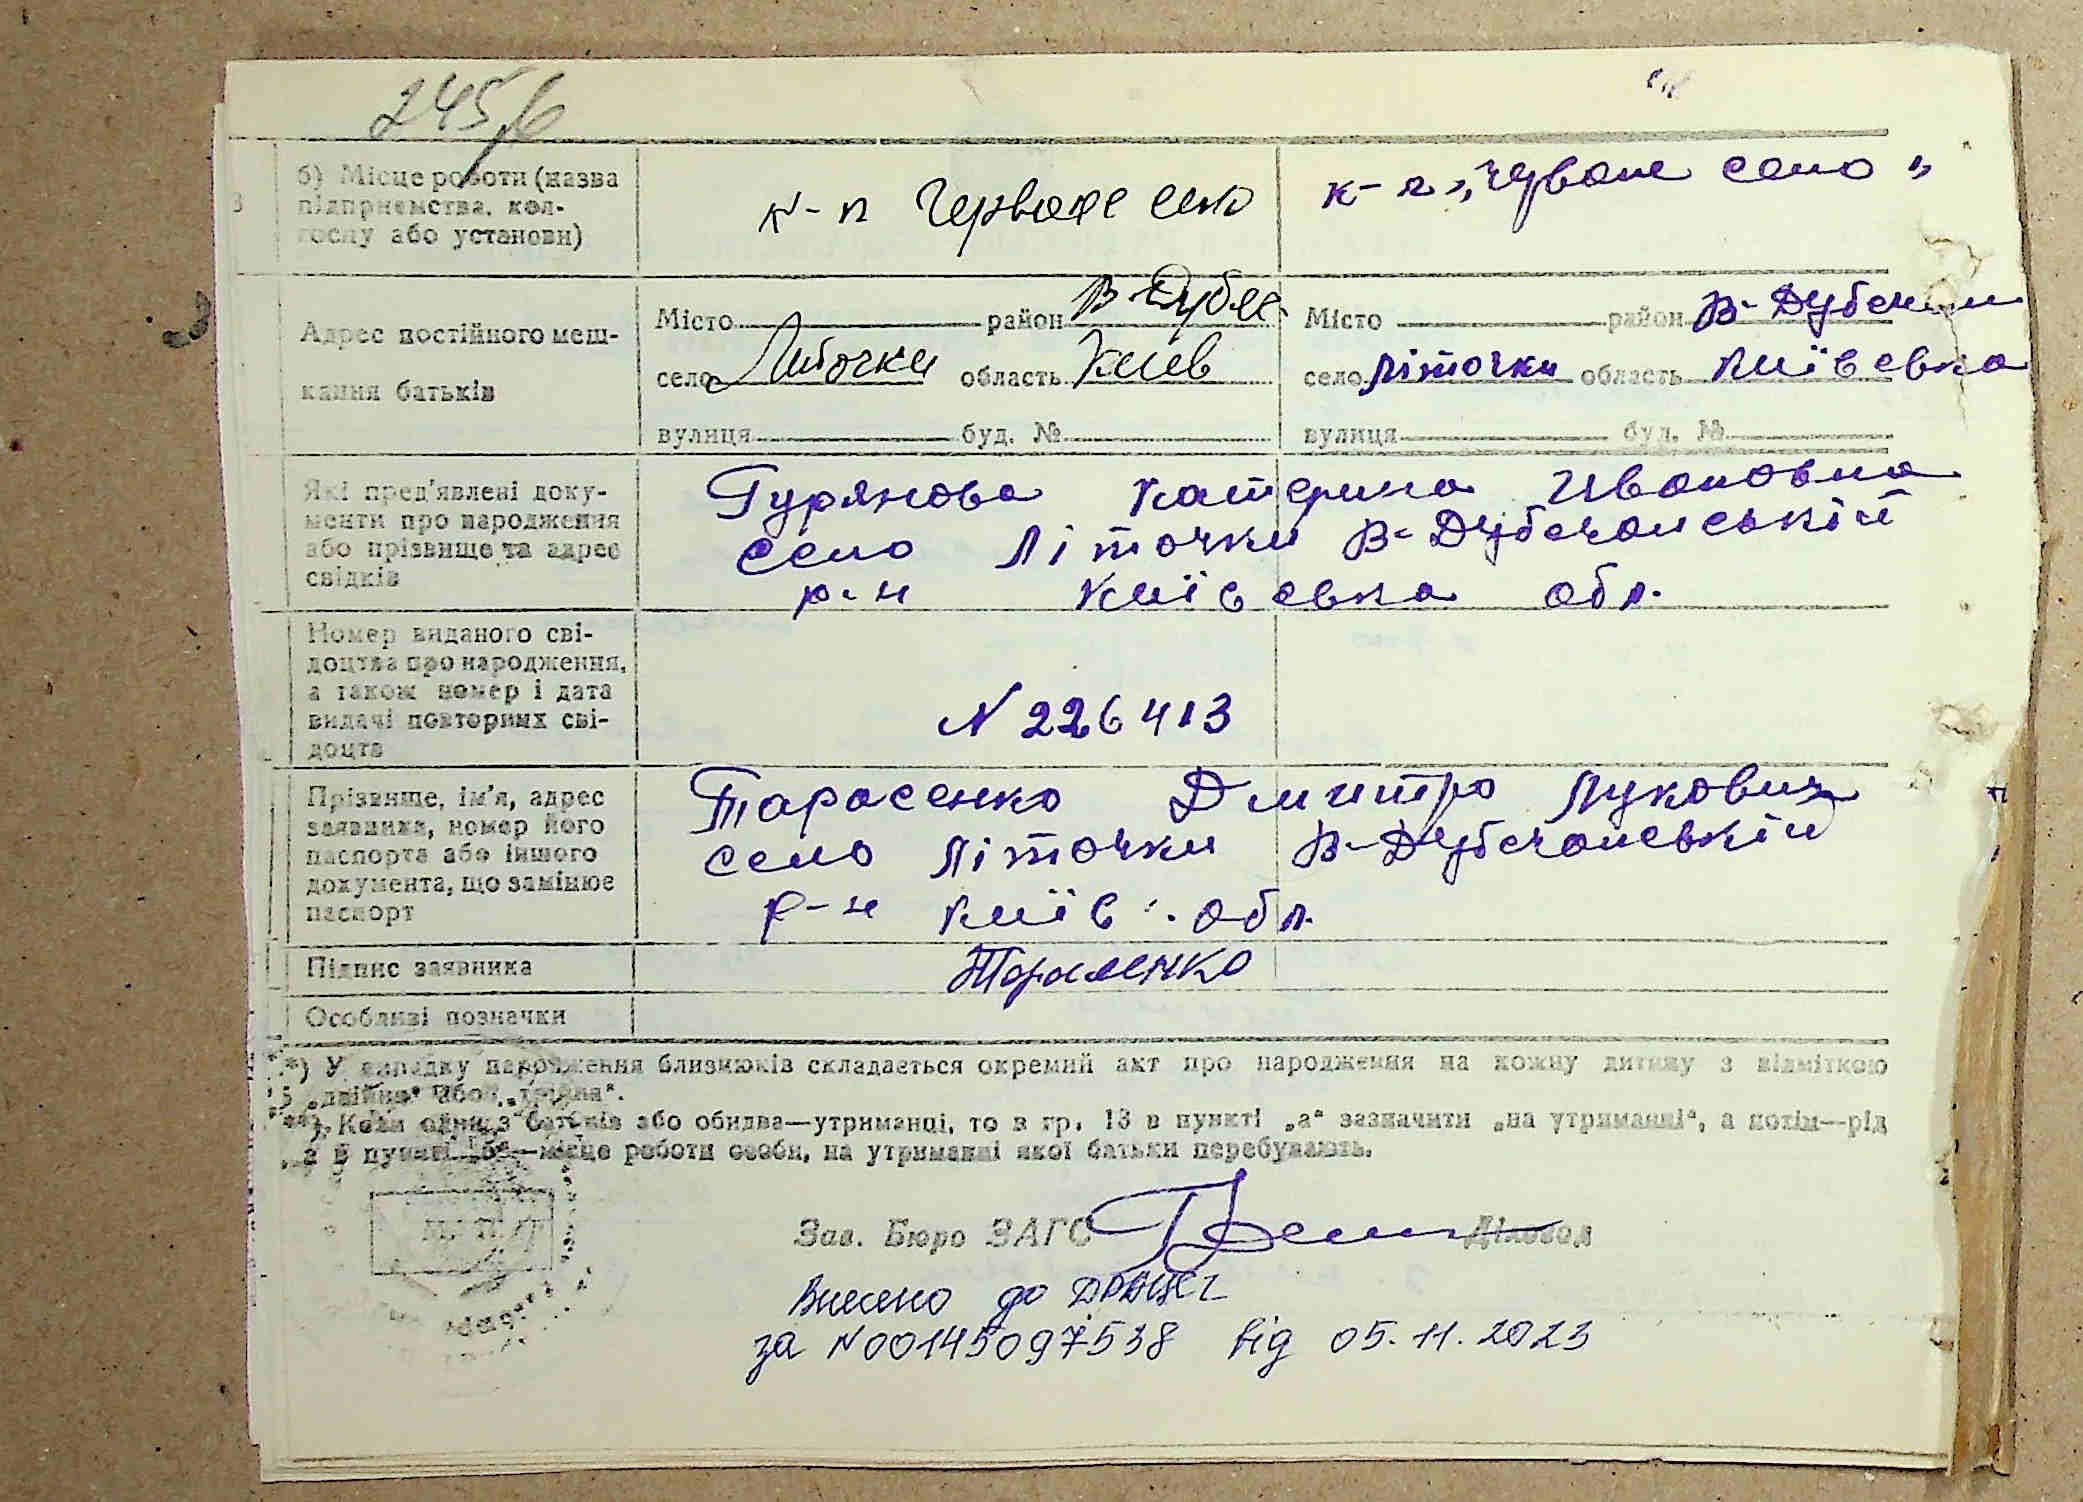 245/6
б) Місце роботи (назва
підприємства, кол-
госпу або установи)
к-п Червоне село
к-п „Чрвоне село"
Адрес постійного меш-
кання батьків
Місто район В-Дубеч.
село Літочки область Киев
вулиця буд. №
Місто район В-Дубечан
село Літочки область Київська
вулиця буд. №
Які пред'явлені доку-
менти про народження
або прізвище та адрес
свідків
Гурянова Катерина Ивановна
село Літочки В-Дубечанський
р-н Київська обл.
Номер виданого сві-
доцтва про народження,
а також номер і дата
видачі повторних сві-
доцтв
N 226413
Прізвище, ім'я, адрес
заявника, номер його
паспорта або іншого
документа, що замінює
паспорт
Тарасенко Дмитро Лукович
село Літочки В-Дубечанський
р-н Київ. обл.
Підпис заявника
Тарасенко
Особливі позначки
*) У випадку народження близнюків складається окремий акт про народження на кожну дитину з відміткою
„двійня" або „трійня".
**) Коли один з батьків або обидва—утриманці, то в гр. 13 в пункті „а" зазначити „на утриманні", а потім—рід
а в пункті „б"—місце роботи особи, на утриманні якої батьки перебувають.
Зав. Бюро ЗАГС Діловод
Внесено до ДРАЦСГ
за N00145097538 від 05.11.2023